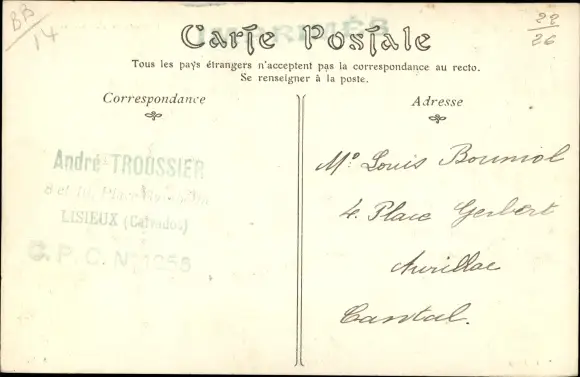 BB
14
22
26
Carte Postale
Tous les pays étrangers n'acceptent pas la correspondance au recto.
Se renseigner à la poste.
Correspondance
Adresse
André TROUSSIER
8 et 10, Place
LISIEUX (Calvados)
C. P. C. N° 1258
Mr Louis Bouniol
4. Place Gerbert
Aurillac
Cantal.